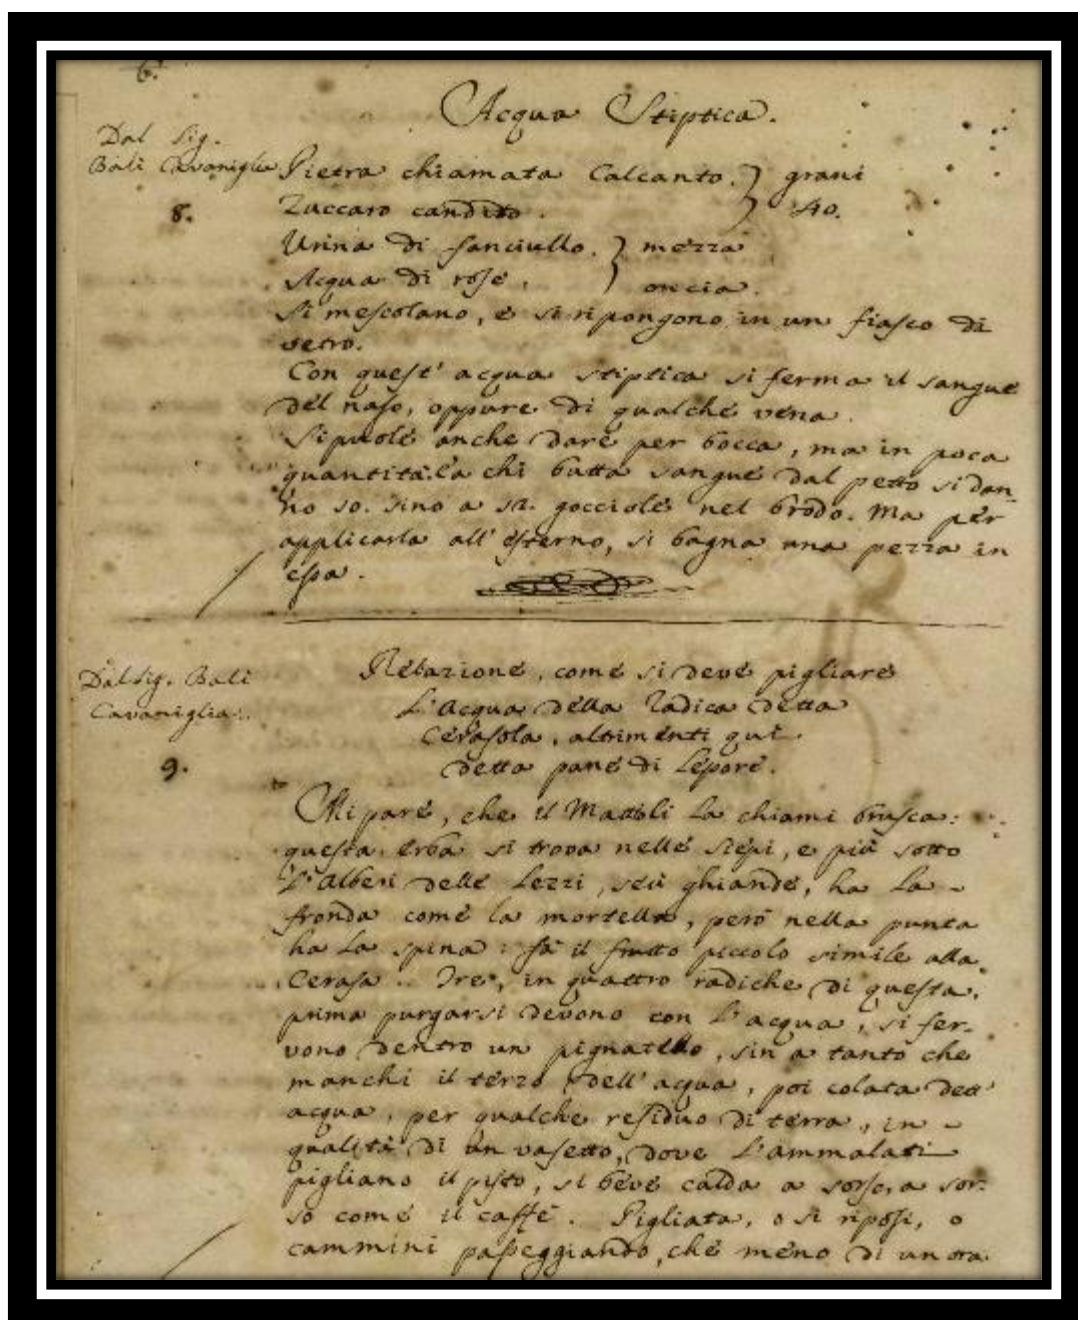 6.
Acqua Stiptica.
Dal Sig.
Bali Cavaniglia
8.
Pietra chiamata Calcanto. } grani
Zuccaro candito. } 40.
Urina di fanciullo. } mezza
Acqua di rose. } oncia.
Si mescolano, e si ripongono in un fiasco di
vetro.
Con quest' acqua stiptica si ferma il sangue
del naso, oppure di qualche vena.
Si puole anche dare per bocca, ma in poca
quantità. a chi butta sangue dal petto si dan-
no 10. sino a 12. gocciole nel brodo. Ma per
applicarla all' esterno, si bagna una pezza in
essa.
Dal Sig. Bali
Cavaniglia.
9.
Relazione, come si deve pigliare
L'Acqua della Radica detta
Cerasola, altrimenti qui
detta pane di Lepore.
Mi pare, che il Mattioli la chiami brusca:
questa erba si trova nelle siepi, e più sotto
l'Alberi delle Lezzi, seu ghiande, ha la
fronda come la mortella, però nella punta
ha la spina: fà il frutto piccolo simile alla
Cerasa. Tre, in quattro radiche di questa,
prima purgarsi devono con l'acqua, si fer-
vono dentro un pignatello, sin a tanto che
manchi il terzo dell' acqua, poi colata dett'
acqua, per qualche residuo di terra, in
qualità di un vasetto, dove l'ammalati
pigliano il pisto, si beve calda a sorso, a sor-
so come il caffè. Pigliata, o si riposi, o
cammini passeggiando, che meno di un ora